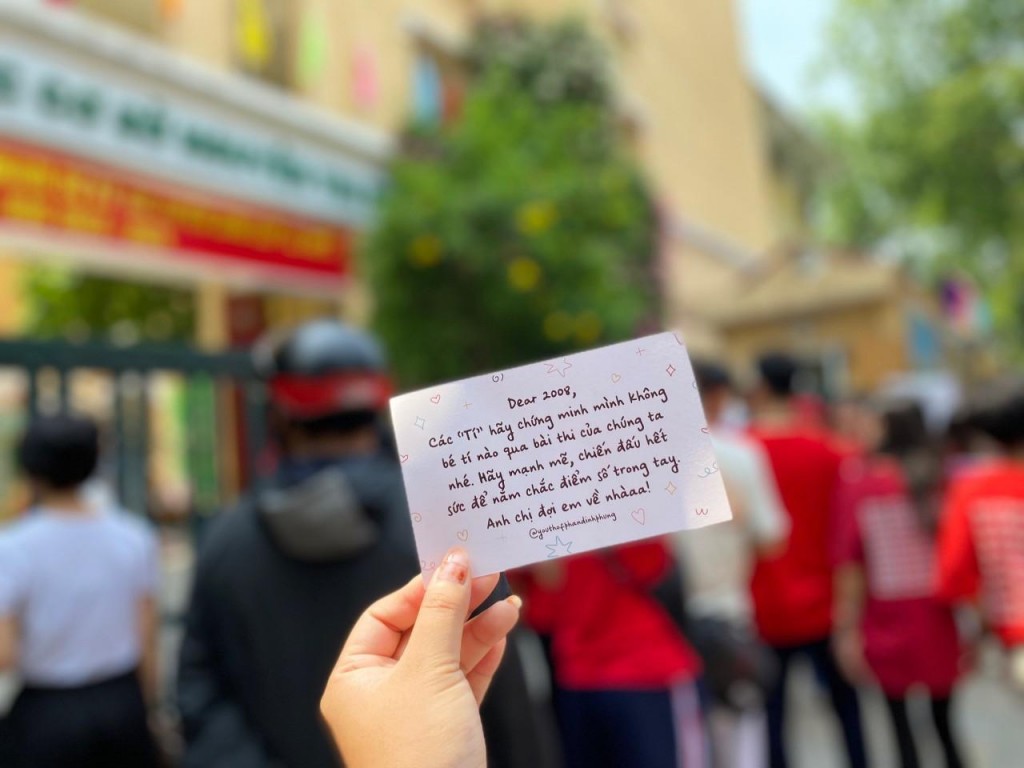 Dear 2008,
Các "Tí" hãy chứng minh mình không
bé tí nào qua bài thi của chúng ta
nhé. Hãy mạnh mẽ, chiến đấu hết
sức để nắm chắc điểm số trong tay.
Anh chị đợi em về nhàaa!
@youthofphandinhphung